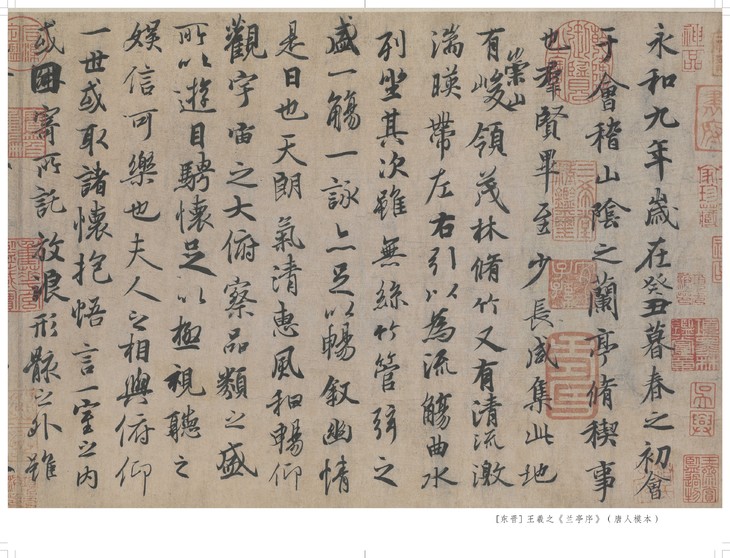 永和九年歲在癸丑暮春之初會
于會稽山陰之蘭亭脩禊事
也羣賢畢至少長咸集此地
有崇山峻領茂林脩竹又有清流激
湍暎帶左右引以為流觴曲水
列坐其次雖無絲竹管弦之
盛一觴一詠亦足以暢叙幽情
是日也天朗氣清惠風和暢仰
觀宇宙之大俯察品類之盛
所以遊目騁懷足以極視聽之
娛信可樂也夫人之相與俯仰
一世或取諸懷抱悟言一室之內
或因寄所託放浪形骸之外雖
[东晋] 王羲之《兰亭序》（唐人模本）